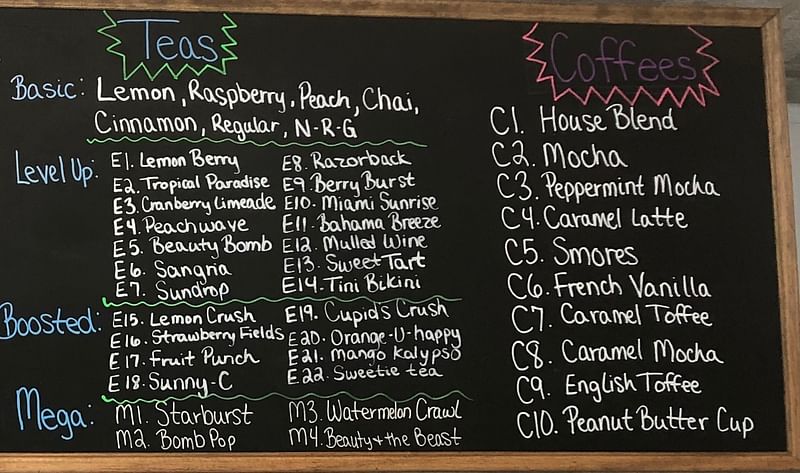 Teas
Basic: Lemon, Raspberry, Peach, Chai,
Cinnamon, Regular, N-R-G
Level Up:
E1. Lemon Berry
E2. Tropical Paradise
E3. Cranberry Limeade
E4. Peachwave
E5. Beauty Bomb
E6. Sangria
E7. Sundrop
E8. Razorback
E9. Berry Burst
E10. Miami Sunrise
E11. Bahama Breeze
E12. Mulled Wine
E13. Sweet Tart
E14. Tini Bikini
Boosted:
E15. Lemon Crush
E16. Strawberry Fields
E17. Fruit Punch
E18. Sunny-C
E19. Cupid's Crush
E20. Orange-U-happy
E21. Mango Kalypso
E22. Sweetie tea
Mega:
M1. Starburst
M2. Bomb Pop
M3. Watermelon Crawl
M4. Beauty + the Beast
Coffees
C1. House Blend
C2. Mocha
C3. Peppermint Mocha
C4. Caramel Latte
C5. Smores
C6. French Vanilla
C7. Caramel Toffee
C8. Caramel Mocha
C9. English Toffee
C10. Peanut Butter Cup